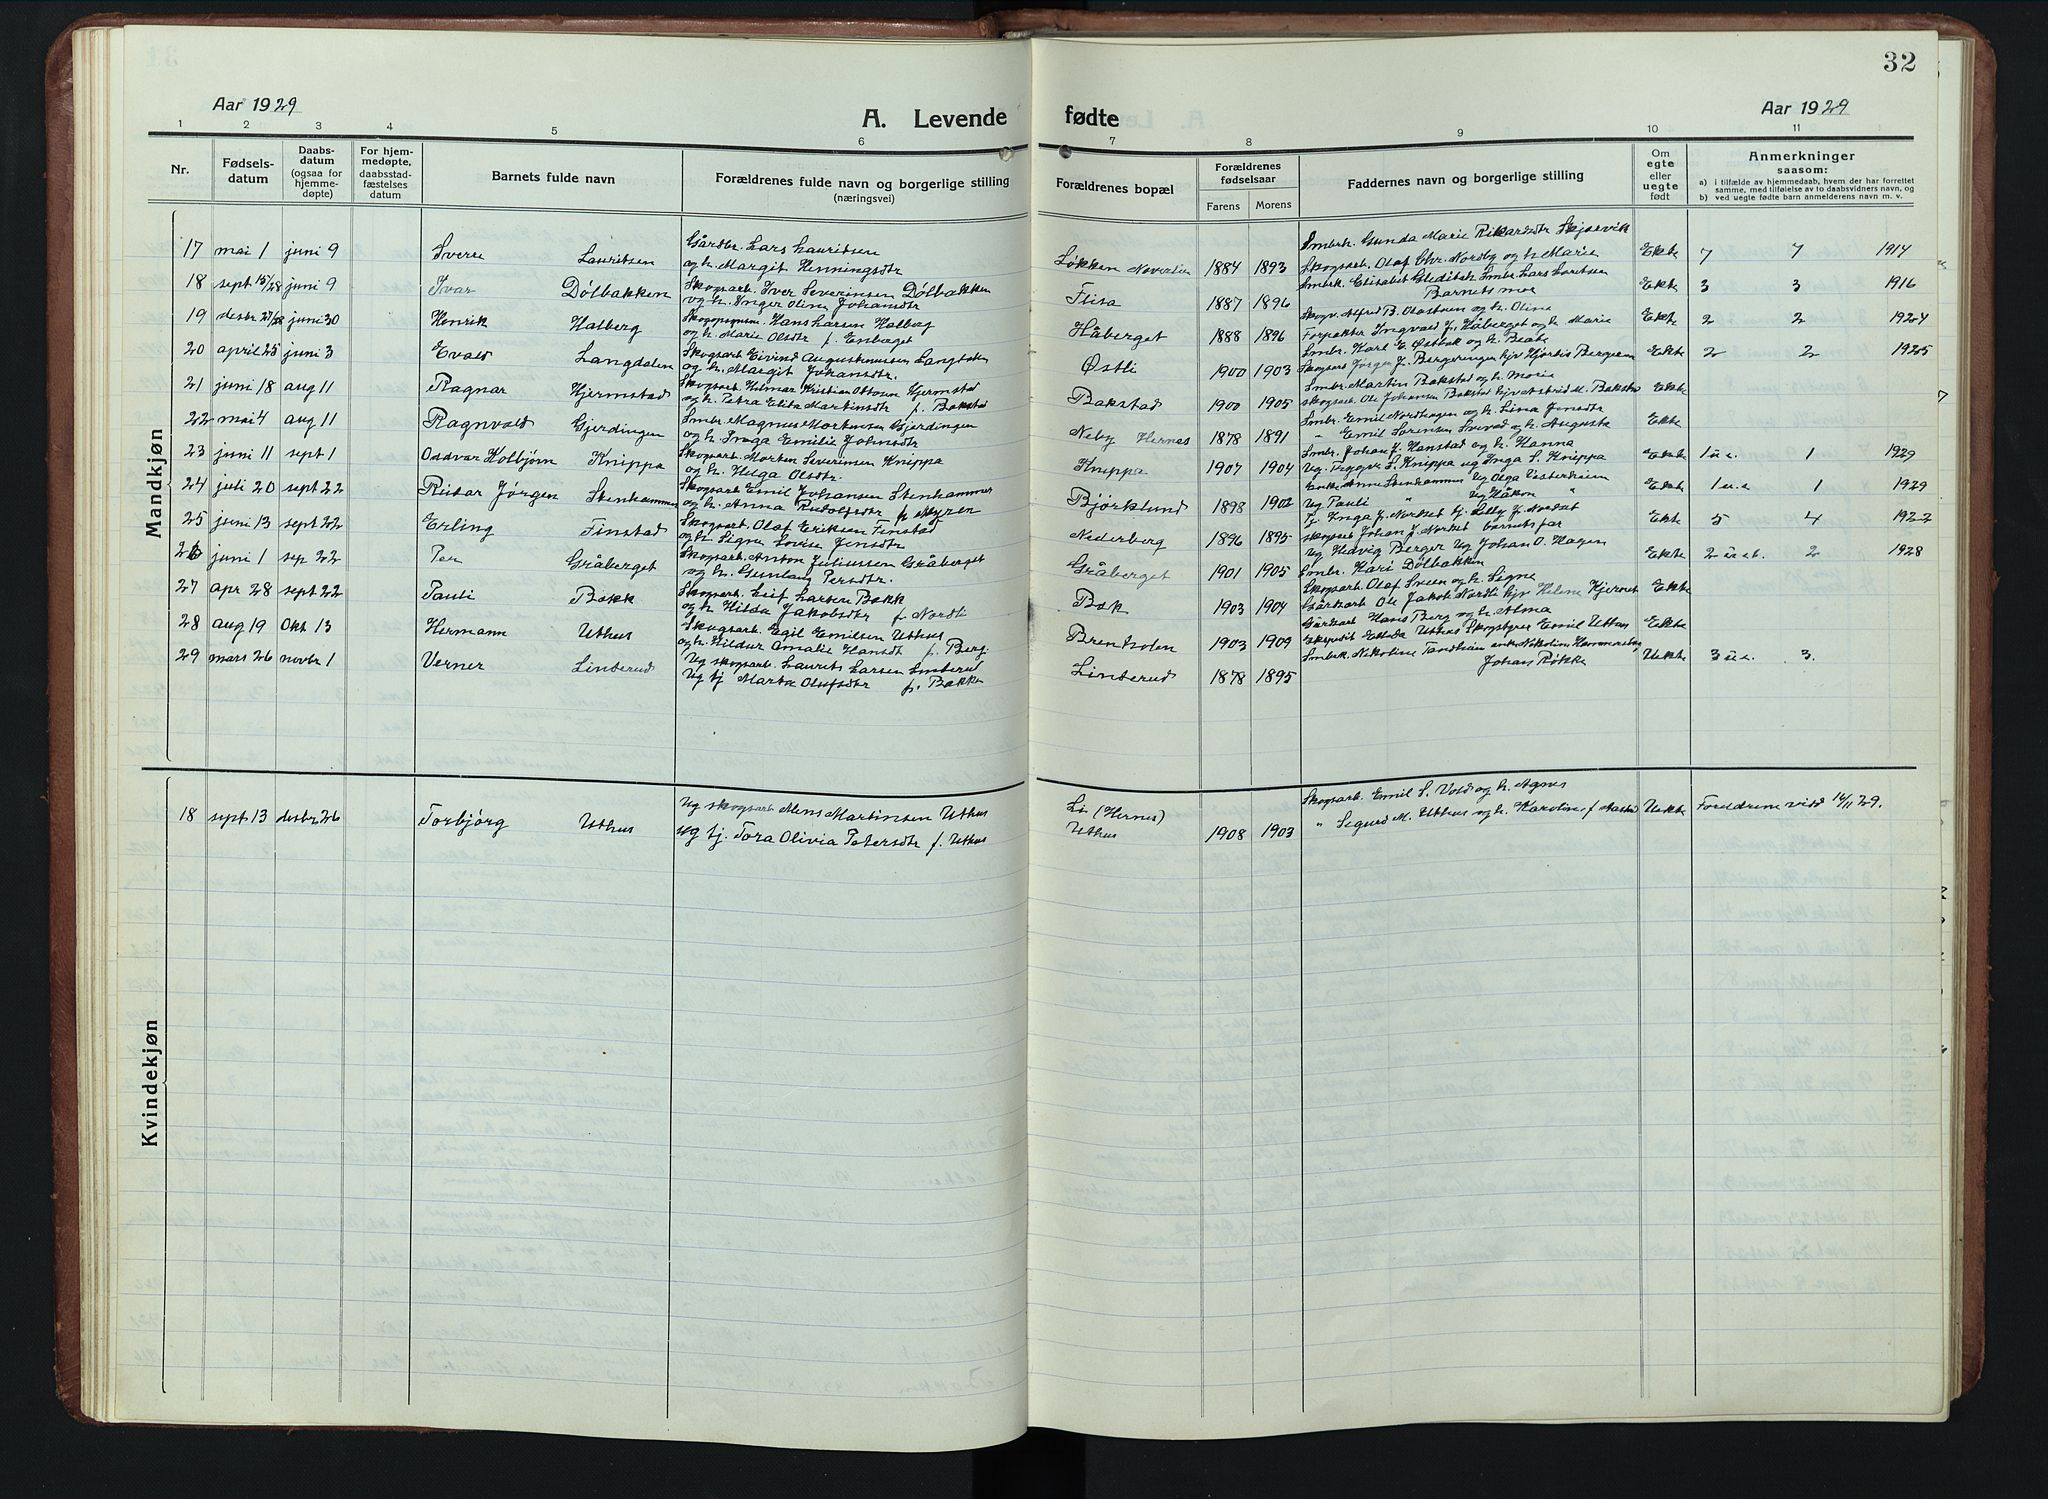 32
Aar 1929
A. Levende fødte
Aar 1929
1 2 3 4 5 6 7 8 9 10 11
Nr.
Fødsels-
datum
Daabs-
datum
(ogsaa for
hjemme-
døpte)
For hjem-
medøpte,
daabsstad-
fæstelses
datum
Barnets fulde navn
Forældrenes fulde navn og borgerlige stilling
(næringsvei)
Forældrenes bopæl
Forældrenes
fødselsaar
Farens Morens
Faddernes navn og borgerlige stilling
Om
egte
eller
uegte
født
Anmerkninger
saasom:
a) i tilfælde av hjemmedaab, hvem der har forrettet
samme, med tilføielse av to daabsvidners navn, og
b) ved uegte fødte barn anmelderens navn m. v.
Mandkjøn
Gårdbr. Lars Lauritsen Smbrk. Gunda Marie Rikardsdtr Skjærvik
17 mai 1 juni 9 Sverre Lauritsen og h. Margit Henningsdtr Løkken 1884 1893 Skogsarb. Olaf Chr. Nordby og h. Marie Ekte 7 7 1914
Skogsarb. Iver Severinsen Dølbakken Smbrk. Elisabet Gleditsch Smbr. Lars Lauritsen
18 sept 15/28 juni 9 Ivar Dølbakken og h. Inger Oline Johansdtr Flisa 1887 1896 Barnets mor Ekte 3 3 1916
Hans Larsen Halberg Skogv. Alfred B. Olastuen og h. Olina
19 desbr 27/28 juni 30 Henrik Halberg og h. Marie Olsdtr f. Enberget Håberget 1888 1896 Forpakter Ingvald J. Håberget og h. Marie Ekte 2 2 1924
Skogsarb Eivind Augustinussen Langdalen Smbr. Karl E Østbak og h. Beate
20 april 25 juni 3 Evald Langdalen og h. Margit Johansdtr. Østli 1900 1903 Skogsarb Jørgen J. Bergeringen Hjørdis Bergersen Ekte 2 2 1925
Skogsarb. Hilmar Kristian Ottosen Hjermstad Smbr. Martin Bakstad og h. Marie
21 juni 18 aug 11 Ragnar Hjermstad og h. Petra Elida Martinsdtr f. Bakstad Bakstad 1900 1905 Skogsarb. Ole Johansen Bakstad Astrid M. Bakstad Ekte
Smbr. Magnus Mortensen Gjerdingen Smbr. Emil Nordhagen og h. Lina Jensdtr
22 mai 4 aug 11 Ragnvald Gjerdingen og h. Inga Emilie Johnsdtr Neby Hernes 1878 1891 " Emil Sørensen og h. Auguste Ekte
Skogsarb. Morten Severinsen Knippa Smbr. Johan J. Hanstad og h. Hanna
23 juni 11 sept 1 Oddvar Kolbjørn Knippa og h. Helga Olsdtr. Knippa 1907 1904 Ug. Trygve S. Knippa ug Inga S. Knippa Ekte 1 u.e. 1 1929
Skogsarb Emil Johansen Stenhammer Enke Anne Stenhammer Ug Olga Vesterheim
24 juli 20 sept 22 Reidar Jørgen Stenhammer og h. Anna Rudolfsdtr f. Myren Bjørklund 1898 1902 Ug Pauli " Ug Håkon " Ekte 1 u.e. 1 1929
Skogsarb. Olaf Eriksen Finstad Tj. Inga J. Nordset tj. Selly J. Nordset
25 juni 13 sept 22 Erling Finstad og h. Signe Lovise Jensdtr Nederberg 1896 1895 Skogsarb Johan J. Nordset barnets far Ekte 5 4 1922
Skogsarb. Anton Juliussen Gråberget Ug Hedvig Berger Ug Johan O. Hagen
26 juni 1 sep 22 Per Gråberget og h. Gunlaug Persdtr. Gråberget 1901 1905 Smbr. Kari Dølbakken Ekte 2 2 1928
Skogsarb. Leif Larsen Bakk Skogsarb. Olaf Sveen og h. Signe
27 apr 28 sept 22 Pauli Bakk og h. Hilda Jakobsdtr f. Nordli Bak 1903 1904 Gårdarb Ole Jakob Nordli Helene Ekte
Skogsarb. Egil Emilsen Uthus Gårdarb Hans Berg og h. Alma
28 aug 19 Okt 13 Hermann Uthus og h. Hildur Amalie Hansdtr f. Berg. Brenholen 1903 1909 Uthus Skogstyrer Emil Uthus Ekte
Ug skogsarb. Laurits Larsen Linberud Smbrk. Nikoline Tandhein enke Nikoline
29 mars 26 novbr 1 Verner Linberud Ug tj Marta Olufsdtr f. Bakke Linberud 1878 1895 Johan Røkke Uekte 3 u.e. 3.
Kvindekjøn
Ug skogsarb. Mens Martinsen Uthus Li (Hernes) Skogsarb. Emil S. Vold og h. Agnes
18 sept 13 desbr 26 Torbjørg Uthus ug tj. Tora Olivia Petersdtr f. Uthus Uthus 1908 1903 " Sigurd M. Uthus og h. Karoline f. Aasted Uekte Foreldrene viet 16/11 29.